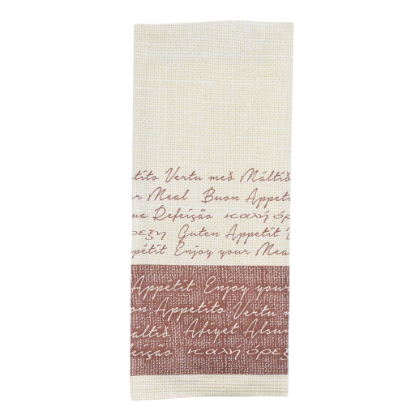 tito Vertu með Máltíð
ur Meal Buon Appeti
na Refeição καλή όρε
ρεξη Guten Appetit V
pétit Enjoy your Mea
Appetit Enjoy your
Buon Appetito Vertu m
Máltíð Afiyet Alsun
feição καλή όρεξ